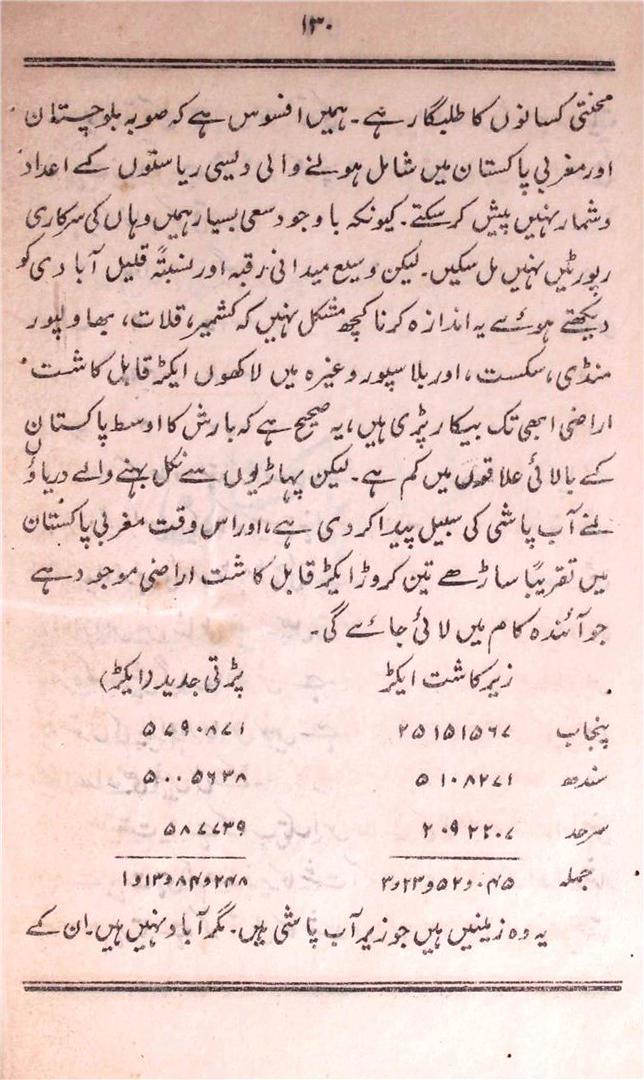 ۱۳۰
محنتی کسانوں کا طلبگار ہے۔ ہمیں افسوس ہے کہ صوبہ بلوچستان
اور مغربی پاکستان میں شامل ہونے والی دیسی ریاستوں کے اعداد
و شمار نہیں پیش کر سکتے۔ کیونکہ باوجود سعی بسیار ہمیں وہاں کی سرکاری
رپورٹیں نہیں مل سکیں۔ لیکن وسیع میدانی رقبہ اور نسبتًہ قلیل آبادی کو
دیکھتے ہوئے یہ اندازہ کرنا کچھ مشکل نہیں کہ کشمیر، قلات، بھاولپور
منڈی، سکست، اور بلاسپور وغیرہ میں لاکھوں ایکڑ قابل کاشت
اراضی ابھی تک بیکار پڑی ہیں، یہ صحیح ہے کہ بارش کا اوسط پاکستان
کے بالائی علاقوں میں کم ہے۔ لیکن پہاڑیوں سے نکل بہنے والے دریاؤں
نے آب پاشی کی سبیل پیدا کر دی ہے، اور اس وقت مغربی پاکستان
میں تقریبًا ساڑھے تین کروڑ ایکڑ قابل کاشت اراضی موجود ہے
جو آئندہ کام میں لائی جائے گی۔
زیر کاشت ایکڑ پڑتی جدید (ایکڑ)
پنجاب ۲۵۱۵۱۵۶۷ ۵۷۹۰۸۷۱
سندھ ۵۱۰۸۲۷۱ ۵۰۰۵۶۳۸
سرحد ۲۰۹۲۲۰۷ ۵۸۷۷۳۹
جملہ ۳و۲۳و۵۲و۰۴۵ ۱و۱۳و۸۴و۲۴۸
یہ وہ زمینیں ہیں جو زیر آب پاشی ہیں۔ مگر آباد نہیں ہیں۔ ان کے